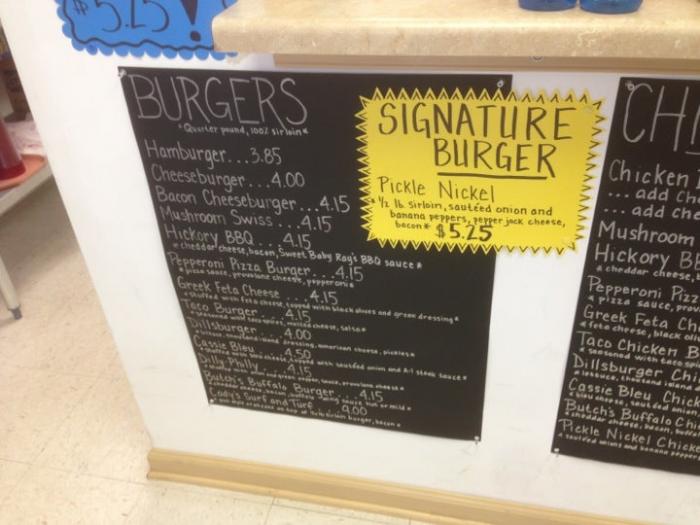 $5.25!
BURGERS
*Quarter pound, 100% sirloin*
Hamburger...3.85
Cheeseburger...4.00
Bacon Cheeseburger...4.15
Mushroom Swiss...4.15
Hickory BBQ...4.15
*cheddar cheese, bacon, Sweet Baby Ray's BBQ sauce*
Pepperoni Pizza Burger...4.15
*pizza sauce, provolone cheese, pepperoni*
Greek Feta Cheese...4.15
*stuffed with feta cheese, topped with black olives and greek dressing*
Taco Burger...4.15
*seasoned with taco spices, melted cheese, salsa*
Dillsburger...4.00
*lettuce, thousand island dressing, american cheese, pickles*
Cassie Bleu...4.50
*stuffed with bleu cheese, topped with sautéed onion and A-1 steak sauce*
Dilly Philly...4.15
sauce, provolone cheese*
Butch's Buffalo Burger...4.15
*cheddar cheese, bacon, buffalo wing sauce hot or mild*
Cody's Surf and Turf...9.00
on top of sirloin burger, bacon*
SIGNATURE
BURGER
Pickle Nickel
*1/2 lb. sirloin, sautéed onion and
banana peppers, pepper jack cheese,
bacon* $5.25
CHI
Chicken
... add ch
... add ch
Mushroom
Hickory BB
*cheddar cheese
Pepperoni Piz
*pizza sauce, prov
Greek Feta Ch
*feta cheese, black oliv
Taco Chicken B
*seasoned with taco spi
Dillsburger Chi
*lettuce, thousand island
Cassie Bleu Chick
*bleu cheese, sautéed onion
Butch's Buffalo Chic
*cheddar cheese, bacon, buff
Pickle Nickel Chicke
*sautéed onions and banana pepper